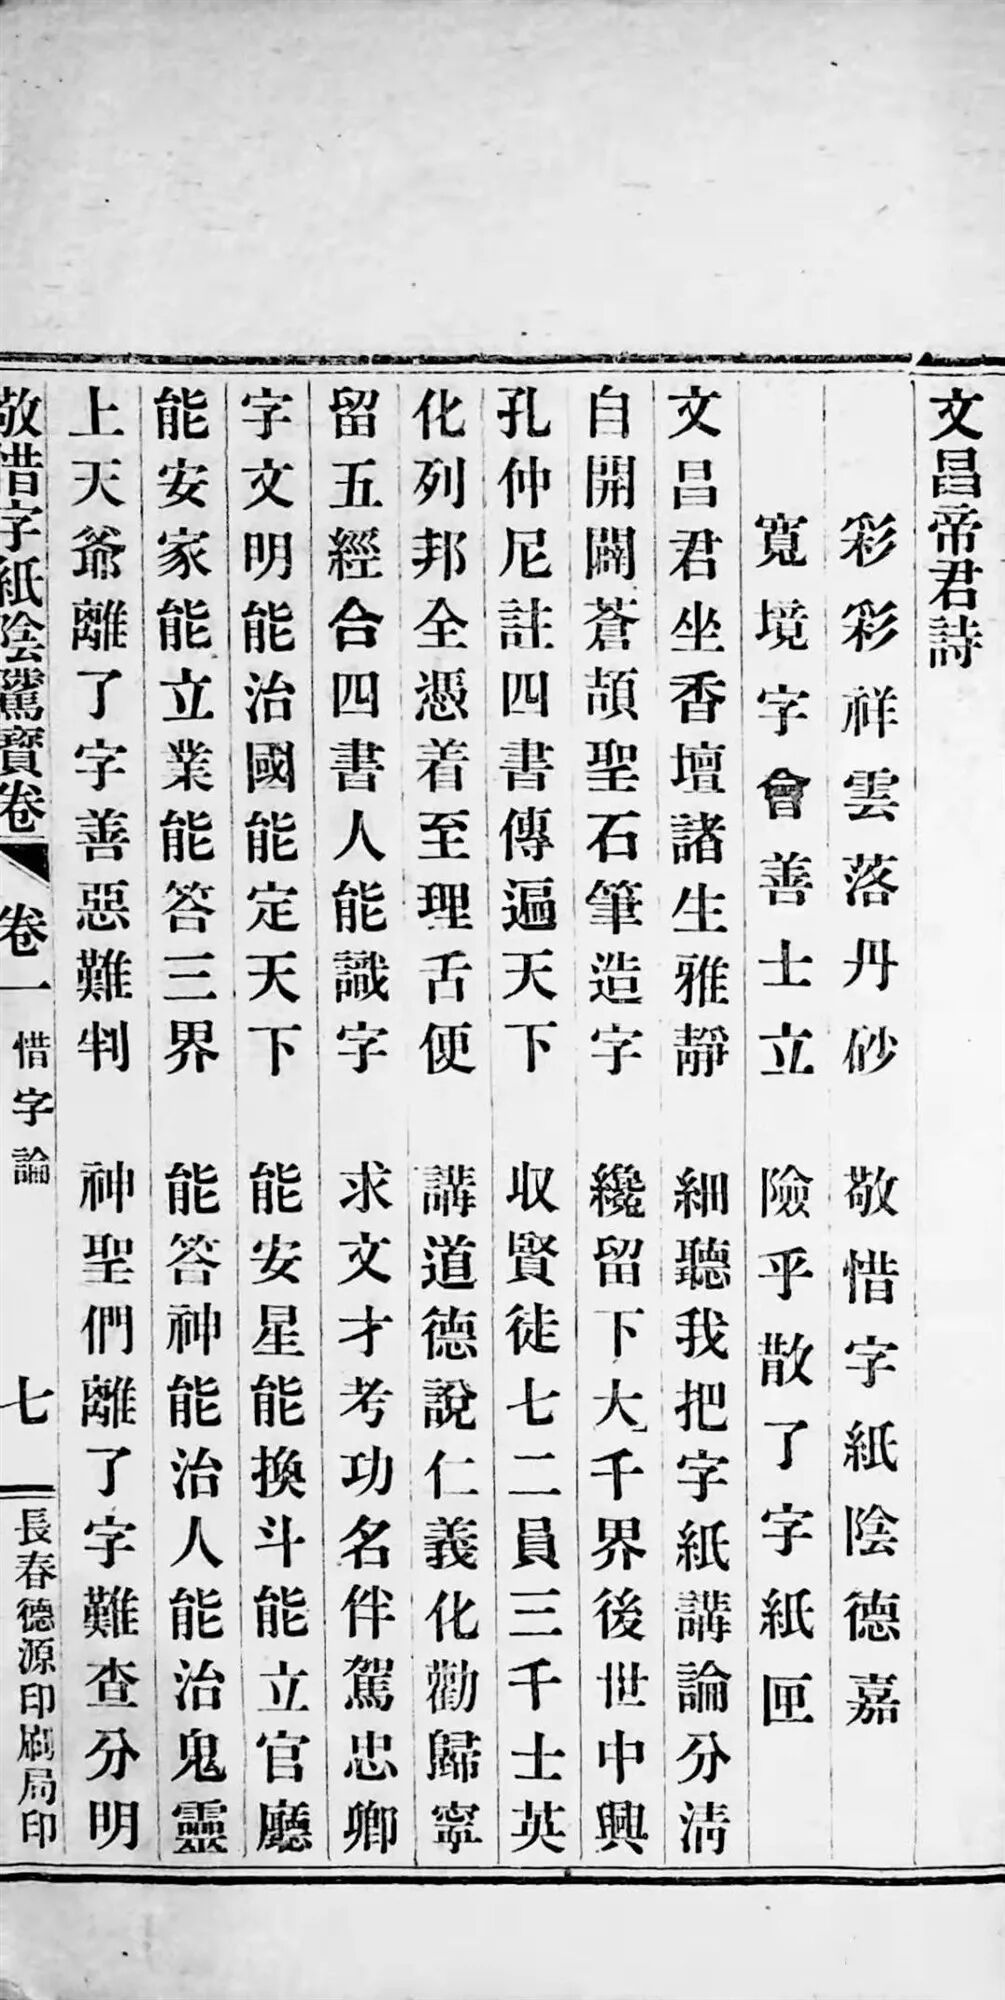 文昌帝君詩
彩彩祥雲落丹砂　敬惜字紙陰德嘉
寬境字會善士立　險乎散了字紙匣
文昌君坐香壇諸生雅靜　細聽我把字紙講論分清
自開闢蒼頡聖石筆造字　纔留下大千界後世中興
孔仲尼註四書傳遍天下　収賢徒七二員三千士英
化列邦全憑着至理舌便　講道德說仁義化勸歸寧
留五經合四書人能識字　求文才考功名伴駕忠卿
字文明能治國能定天下　能安星能換斗能立官廳
能安家能立業能答三界　能答神能治人能治鬼靈
上天爺離了字善惡難判　神聖們離了字難查分明
敬惜字紙陰騭寶卷　卷一　惜字論　七　長春德源印刷局印